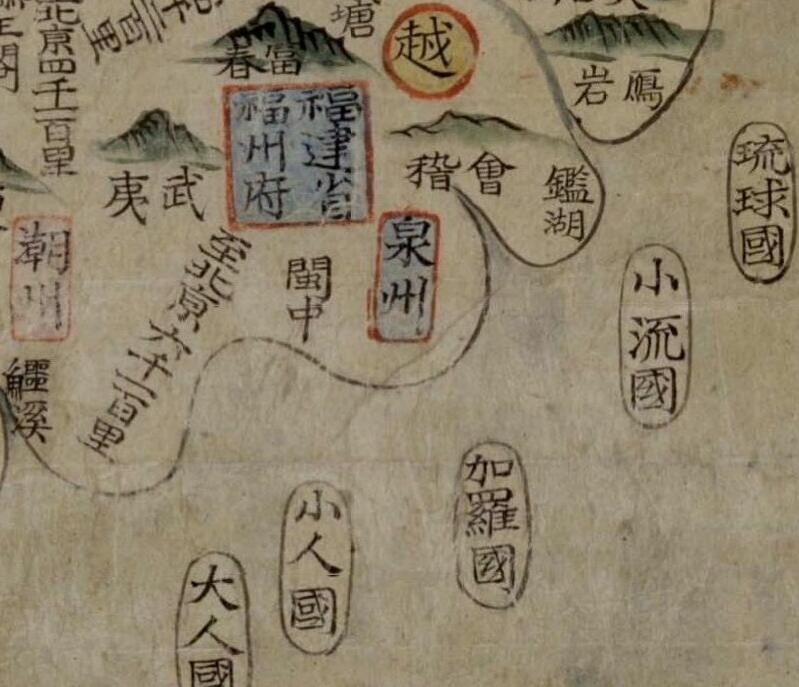 琉球國
鴈岩
小流國
鑑湖
越
會稽
塘
富春
福建省
福州府
泉州
閩中
至北京六千一百里
武夷
千二百里
北京四千一百里
王閣
潮州
鱷溪
加羅國
小人國
大人國